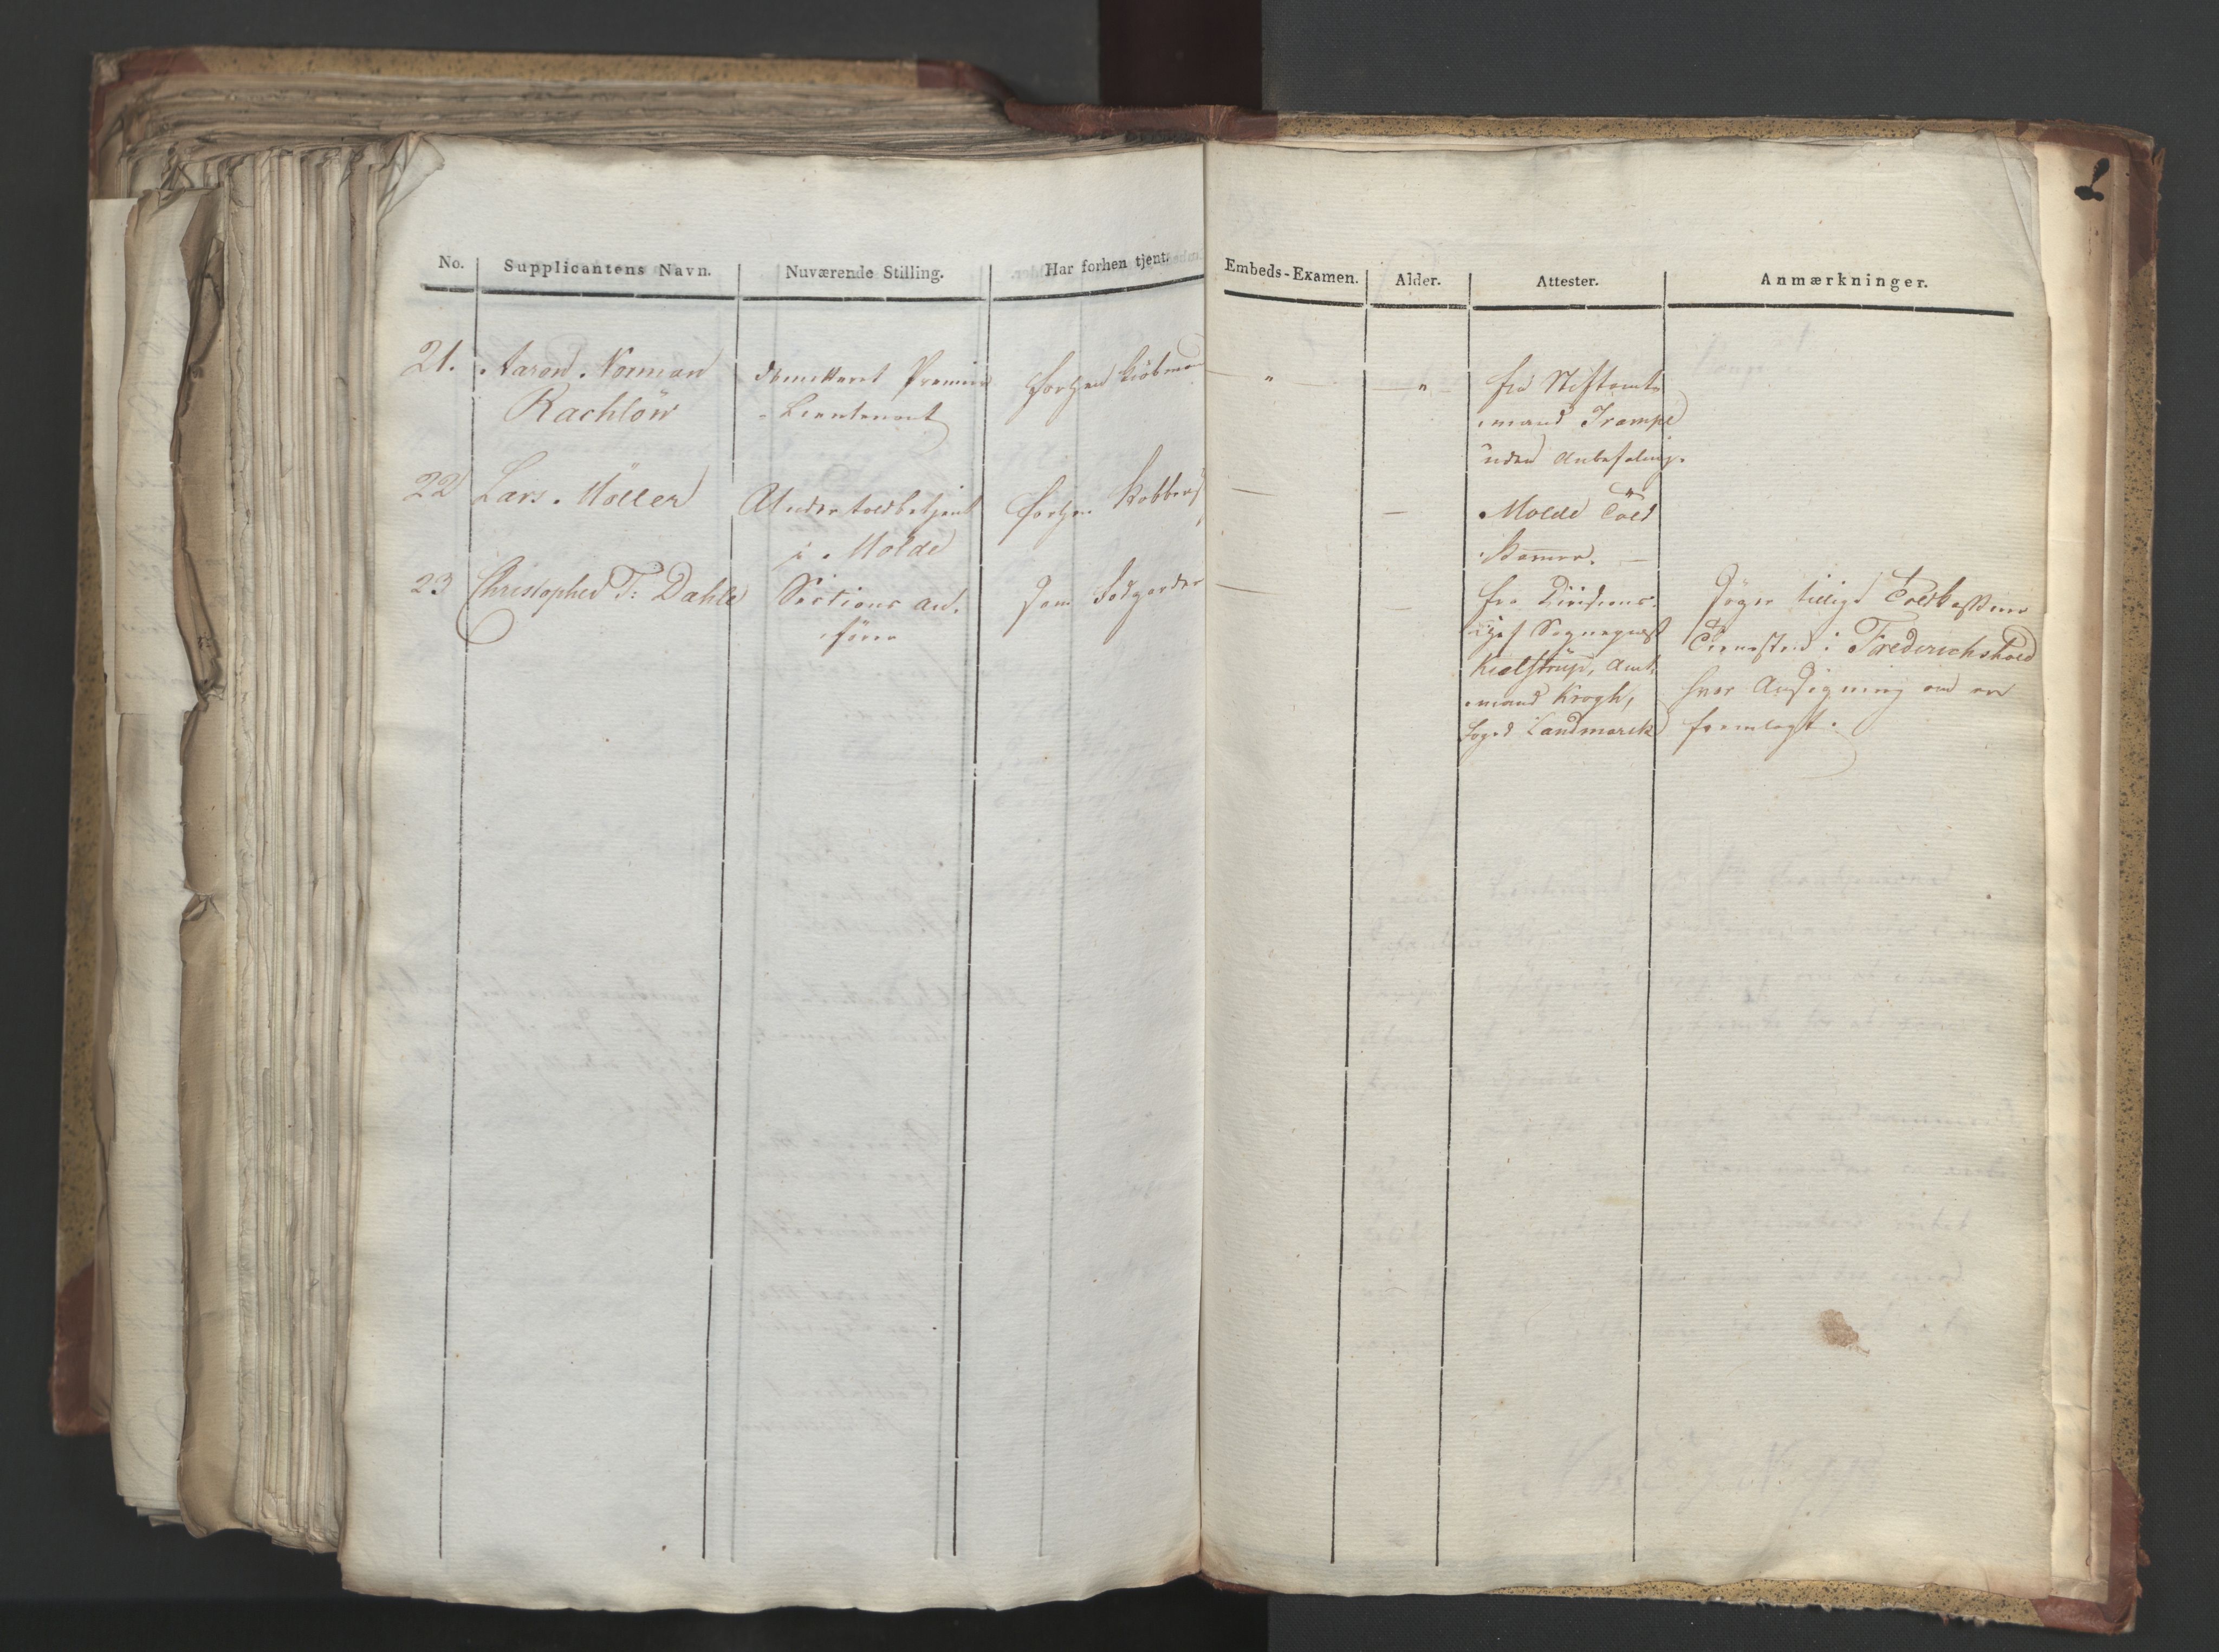 No. Supplicantens Navn. Nuværende Stilling. Har forhen tjent. Embeds-Examen. Alder. Attester. Anmærkninger.
21. Aaron Norman
Rachlöw
demitteret Premier
Lieutenant
forhen Kiöbmand
fra Stiftamt-
mand Trampe
uden Anbefaling.
22 Lars Möller
Undertoldbetjent
i Molde
forhen
Molde Told
Kammer.
23 Christopher T: Dahle
Sections An-
förer
fra
Sognepræst
Kieelstrup, Amt-
mand Krogh,
Foged Landmarck
Söger tillige Toldkasserer
Tienesten i Frederichshald
hvor Ansögning om er
fremlagt.